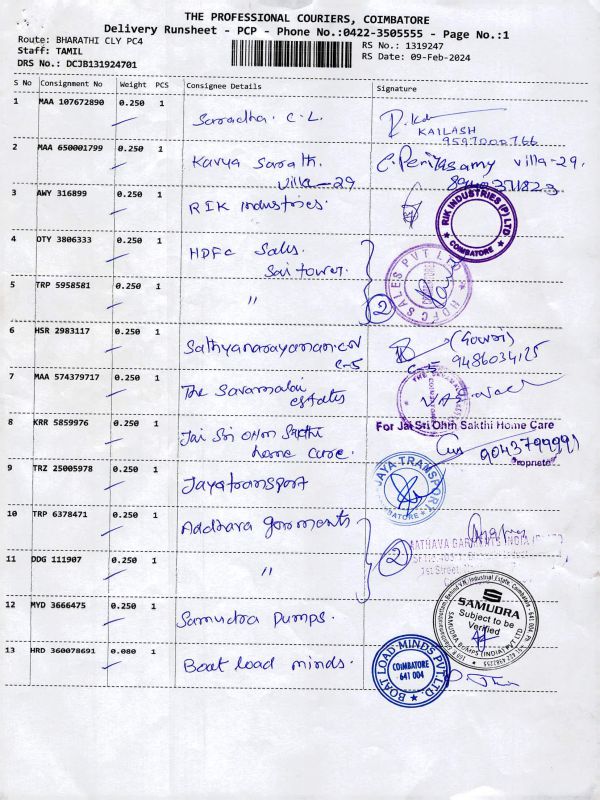 THE PROFESSIONAL COURIERS, COIMBATORE
Delivery Runsheet - PCP - Phone No.:0422-3505555 - Page No.:1
Route: BHARATHI CLY PC4
Staff: TAMIL
DRS No.: DCJB131924701
RS No.: 1319247
RS Date: 09-Feb-2024
S No Consignment No Weight PCS Consignee Details Signature
1 MAA 107672890 0.250 1 Saradha. C.L.
KAILASH
2 MAA 650001799 0.250 1 Kavya Sarathi. C. Periyasamy villa-29.
villa-29
3 AWY 316899 0.250 1 RIK Industries.
RIK INDUSTRIES (P) LTD.
COIMBATORE
4 OTY 3806333 0.250 1 HDFC Sales.
Sai tower.
HDFC SALES PVT LTD
5 TRP 5958581 0.250 1 " 2
6 HSR 2983117 0.250 1 Sathyanarayanan.CV (Gowri)
C-5 C-5 9486034125
7 MAA 574379717 0.250 1 The Saravanalai
estates
8 KRR 5859976 0.250 1 Jai Sri Ohm Sakthi
home care.
For Jai Sri Ohm Sakthi Home Care
9043799991
Proprietor
9 TRZ 25005978 0.250 1 Jayatransport
JAYA TRANSPORT
COIMBATORE
10 TRP 6378471 0.250 1 Aadhava garments
AATHAVA GARMENTS INDIA
1st Street
11 DDG 111907 0.250 1 " 2
12 MYD 3666475 0.250 1 Samudra Pumps.
SAMUDRA
Subject to be
Verified
SAMUDRA PUMPS (INDIA) PVT LTD
13 HRD 360078691 0.080 1 Boat load minds.
BOAT LOAD MINDS PVT.LTD.
COIMBATORE
641 004